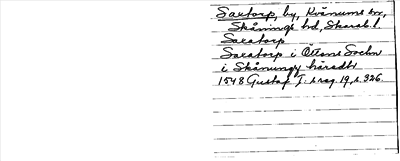 Saxtorp, by, Kvänums sn,
Skånings hd, Skarab. l
Saxatorp
Saxatorp i Öttens Sochn
i Skånungz häradt
1548 Gustaf I: s reg. 19, s. 326.